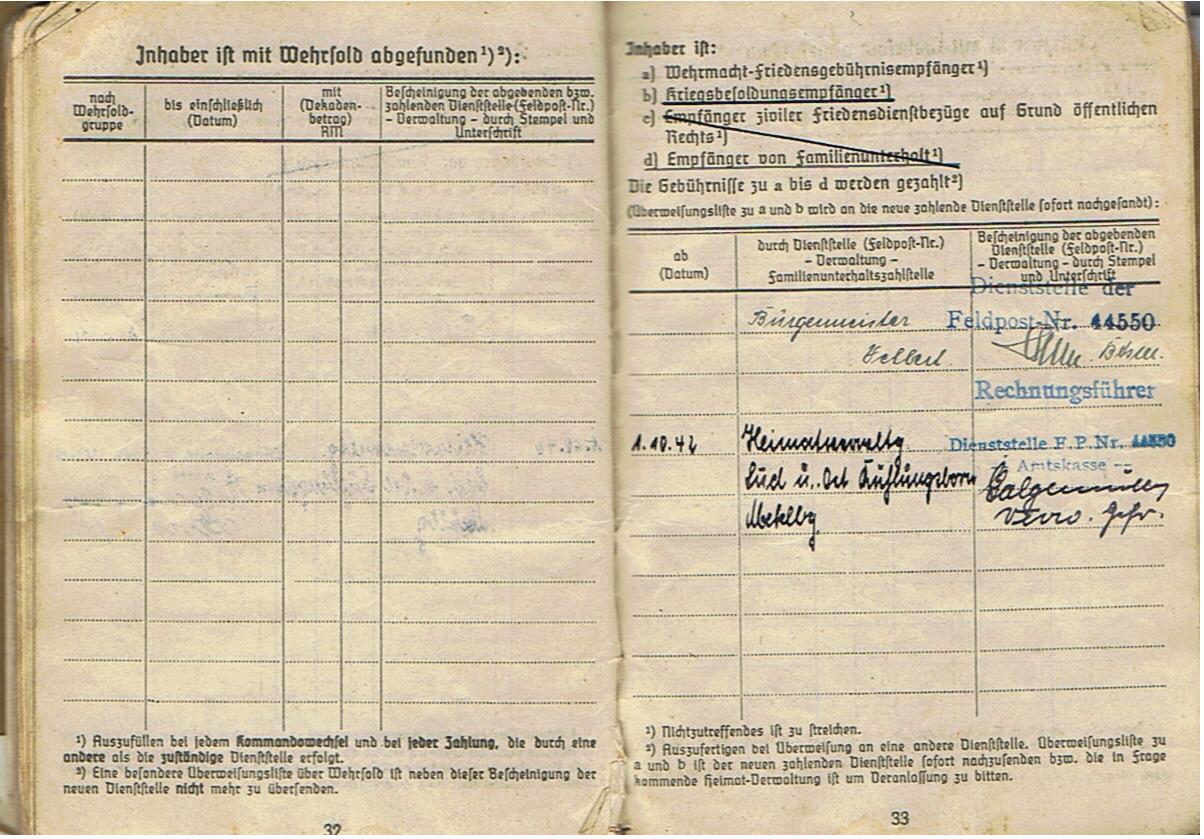 Inhaber ist mit Wehrsold abgefunden¹) ²):
nach Wehrsold-
gruppe
bis einschließlich
(Datum)
mit
(Dekaden-
betrag)
RM
Bescheinigung der abgebenden bzw.
zahlenden Dienststelle (Feldpost-Nr.)
- Verwaltung - durch Stempel und
Unterschrift
¹) Auszufüllen bei jedem Kommandowechsel und bei jeder Zahlung, die durch eine
andere als die zuständige Dienststelle erfolgt.
²) Eine besondere Überweisungsliste über Wehrsold ist neben dieser Bescheinigung der
neuen Dienststelle nicht mehr zu übersenden.
32
Inhaber ist:
a) Wehrmacht-Friedensgebührnisempfänger¹)
b) Kriegsbesoldungsempfänger¹)
c) Empfänger ziviler Friedensdienstbezüge auf Grund öffentlichen
Rechts¹)
d) Empfänger von Familienunterhalt¹)
Die Gebührnisse zu a bis d werden gezahlt²)
(Überweisungsliste zu a und b wird an die neue zahlende Dienststelle sofort nachgesandt):
ab
(Datum)
durch Dienststelle (Feldpost-Nr.)
- Verwaltung -
Familienunterhaltszahlstelle
Bescheinigung der abgebenden
Dienststelle (Feldpost-Nr.)
- Verwaltung - durch Stempel
und Unterschrift
Dienststelle der
Bürgermeister Feldpost-Nr. 44550
Velbert
Rechnungsführer
1.10.42 Heimatverwaltg. Dienststelle F.P.Nr. 44550
Amtskasse
Süd u. Ost Kühlungsborn
Meklbg
¹) Nichtzutreffendes ist zu streichen.
²) Auszufertigen bei Überweisung an eine andere Dienststelle. Überweisungsliste zu
a und b ist der neuen zahlenden Dienststelle sofort nachzusenden bzw. die in Frage
kommende Heimat-Verwaltung ist um Veranlassung zu bitten.
33